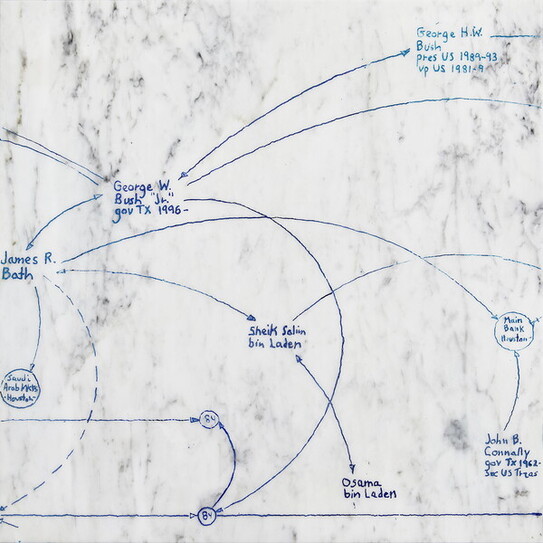 George H.W.
Bush
pres US 1989-93
vp US 1981-9
George W.
Bush "Jr."
gov TX 1996-
James R.
Bath
Sheik Salim
bin Laden
Main
Bank
Houston
Saudi
Houston
84
John B.
Connally
gov TX 1962-
Sec US Treas
Osama
bin Laden
84